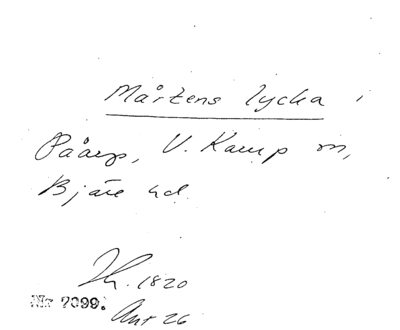 Mårtens lycka
Påarp, V. Karup sn,
Bjäre hd.
1820
Nr 7099.
Ant 26